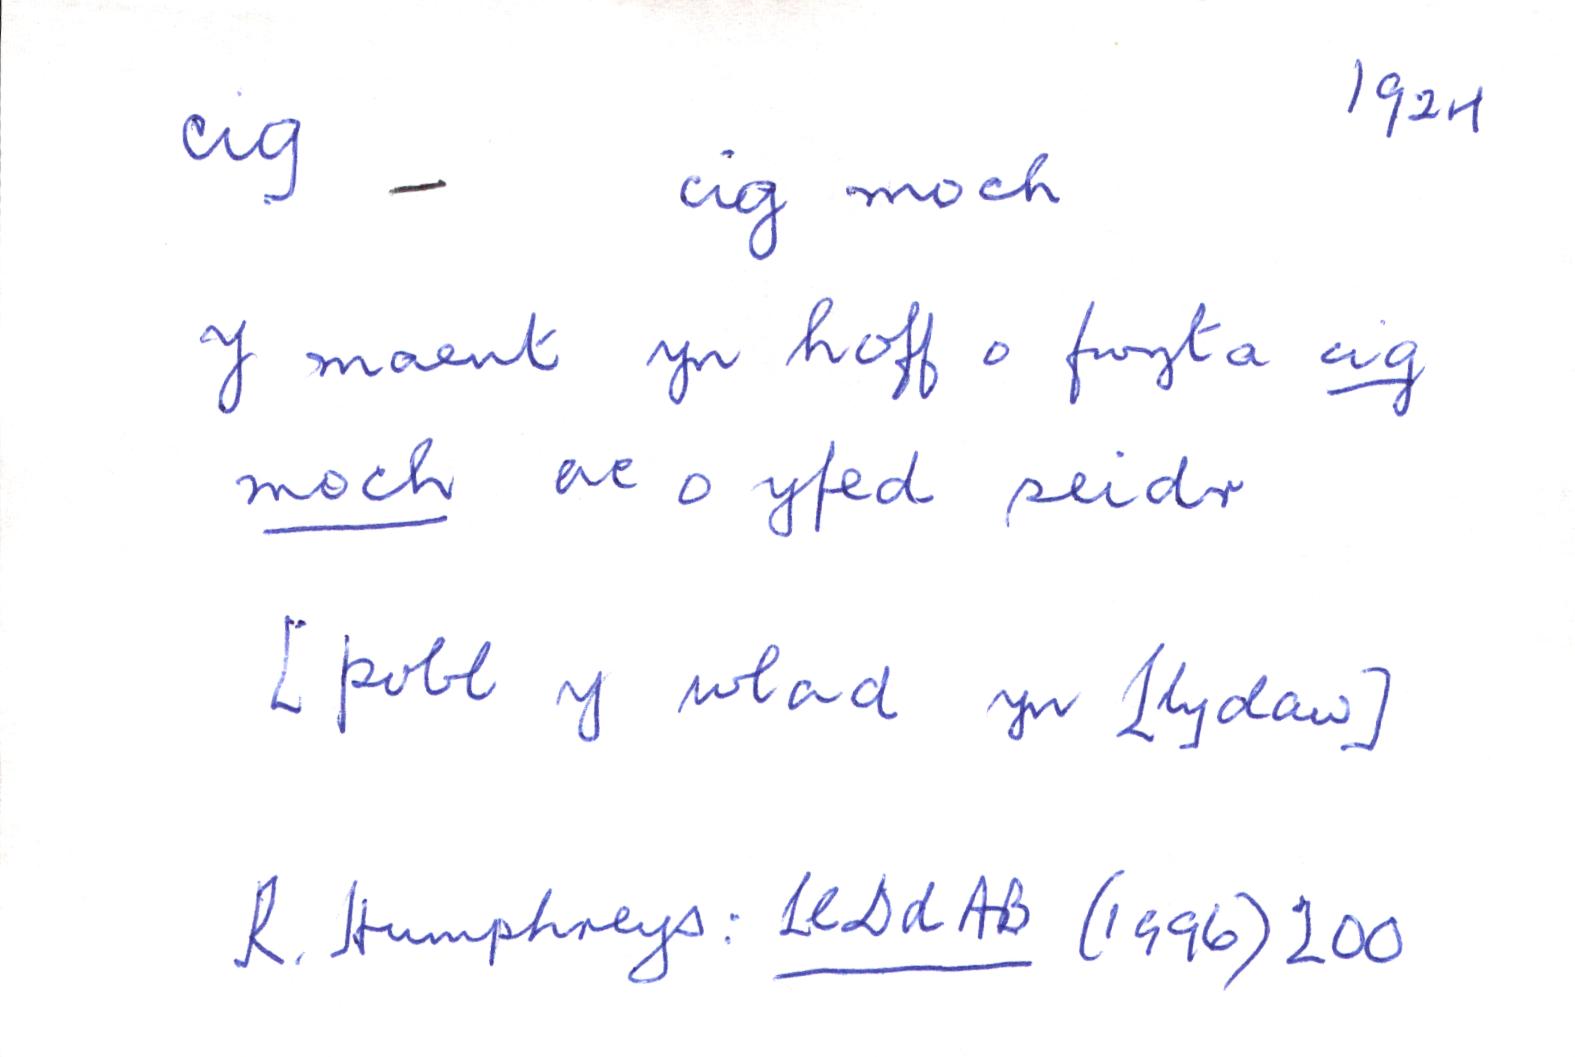 1924
cig – cig moch
Y maent yn hoff o fwyta cig
moch ac o yfed seidr
[pobl y wlad yn Llydaw]
R. Humphreys: LlDdAB (1996) 200